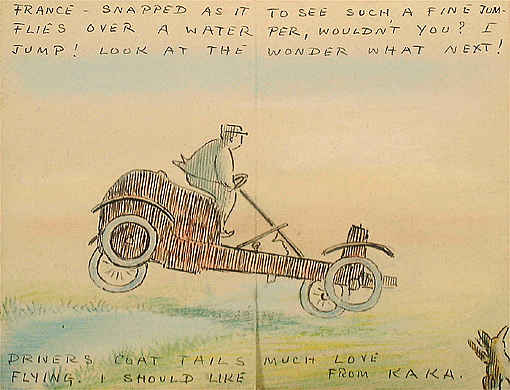 FRANCE - SNAPPED AS IT
FLIES OVER A WATER
JUMP! LOOK AT THE
DRIVERS COAT TAILS
FLYING. I SHOULD LIKE
TO SEE SUCH A FINE JUM-
PER, WOULDNT YOU? I
WONDER WHAT NEXT!
MUCH LOVE
FROM KAKA.